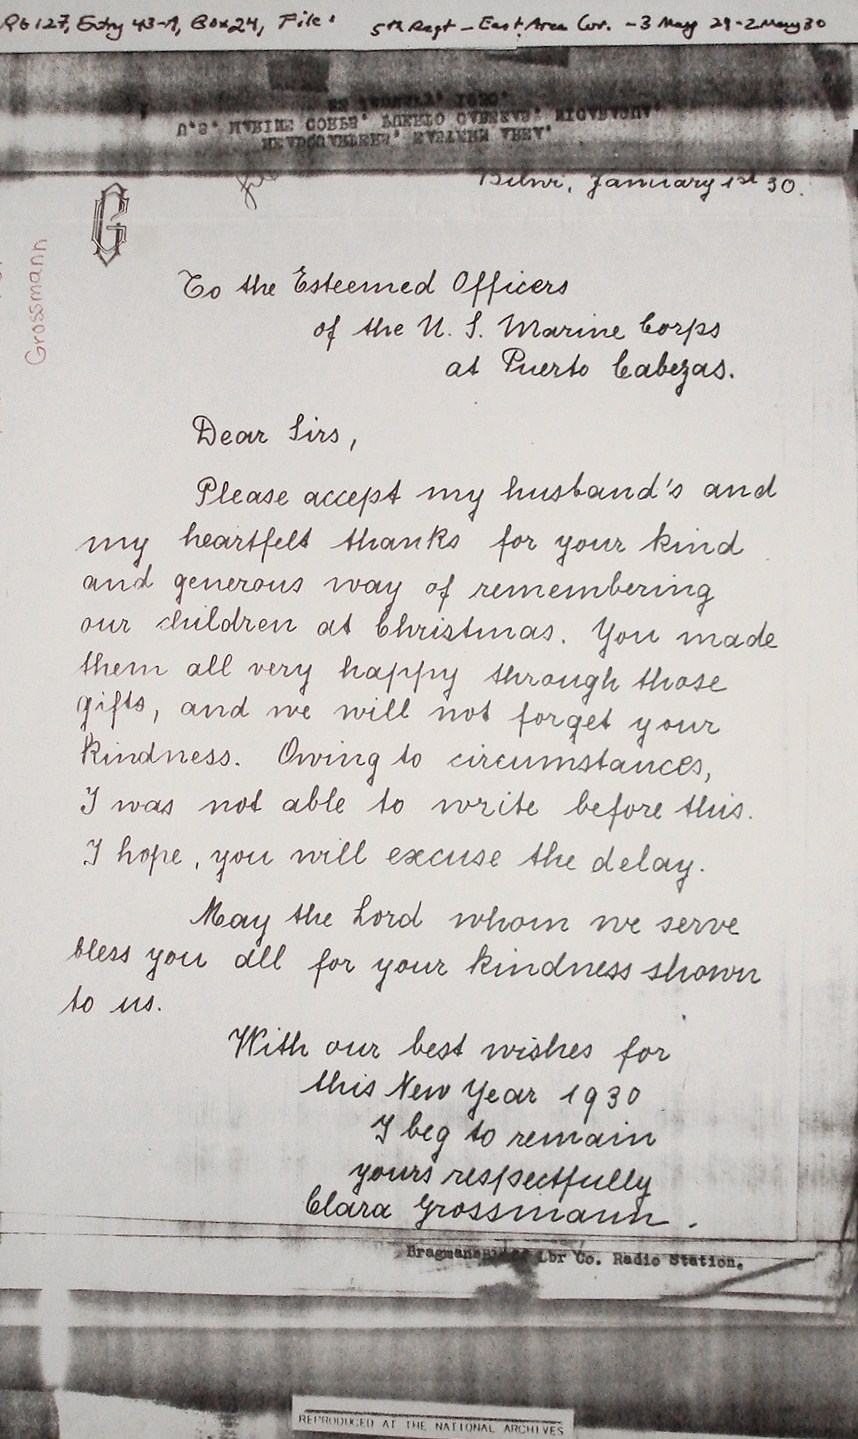 RG127, Entry 43-A, Box 24, File: 5th Regt - East Area Cor. - 3 May 29 - 2 May 30
U.S. MARINE CORPS, PUERTO CABEZAS, NICARAGUA.
HEADQUARTERS, EASTERN AREA,
January 1st 30.
G
Grossmann
To the Esteemed Officers
of the U. S. Marine Corps
at Puerto Cabezas.
Dear Sirs,
Please accept my husband's and
my heartfelt thanks for your kind
and generous way of remembering
our children at Christmas. You made
them all very happy through those
gifts, and we will not forget your
kindness. Owing to circumstances,
I was not able to write before this.
I hope, you will excuse the delay.
May the Lord whom we serve
bless you all for your kindness shown
to us.
With our best wishes for
this New Year 1930
I beg to remain
yours respectfully
Clara Grossmann.
Lbr Co. Radio Station.
REPRODUCED AT THE NATIONAL ARCHIVES